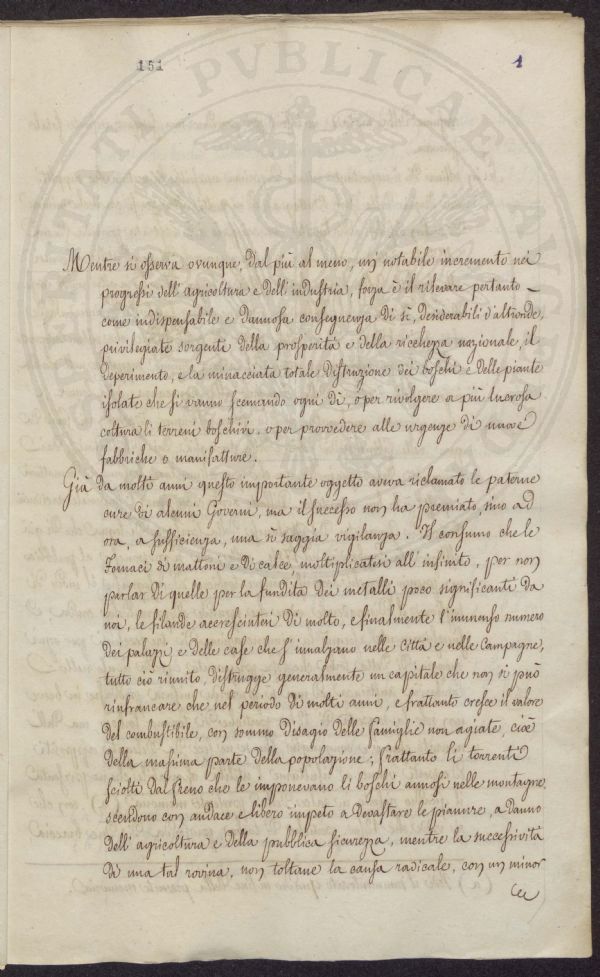 151
1
Mentre si osserva ovunque, dal più al meno, un notabile incremento nei
progressi dell'agricoltura e dell'industria, forza è il rilevare pertanto
come indispensabile e dannosa conseguenza di sì, desiderabili d'altronde,
privilegiate sorgenti della prosperità e della ricchezza nazionale, il
deperimento, e la minacciata totale distruzione dei boschi e delle piante
isolate che si vanno scemando ogni dì, o per rivolgere a più lucrosa
coltura li terreni boschivi, o per provvedere alle urgenze di nuove
fabbriche o manifatture.
Già da molti anni questo importante oggetto aveva riclamato le paterne
cure di alcuni Governi, ma il successo non ha premiato, sino ad
ora, a sufficienza, una sì saggia vigilanza. Il consumo che le
Fornaci di mattoni e di calce, moltiplicatesi all'infinito, per non
parlar di quelle per la fundita dei metalli poco significanti da
noi, le filande accresciutesi di molto, e finalmente l'immenso numero
dei palazzi e delle case che s'innalzano nelle Città e nelle Campagne,
tutto ciò riunito, distrugge generalmente un capitale che non si può
rinfrancare che nel periodo di molti anni, e frattanto cresce il valore
del combustibile, con sommo disagio delle famiglie non agiate, cioè
della massima parte della popolazione; frattanto li torrenti
sciolti dal freno che le imponevano li boschi annosi nelle montagne,
scendono con audace e libero impeto a devastare le pianure, a danno
dell'agricoltura e della pubblica sicurezza, mentre la successività
di una tal rovina, non toltane la causa radicale, con un minor